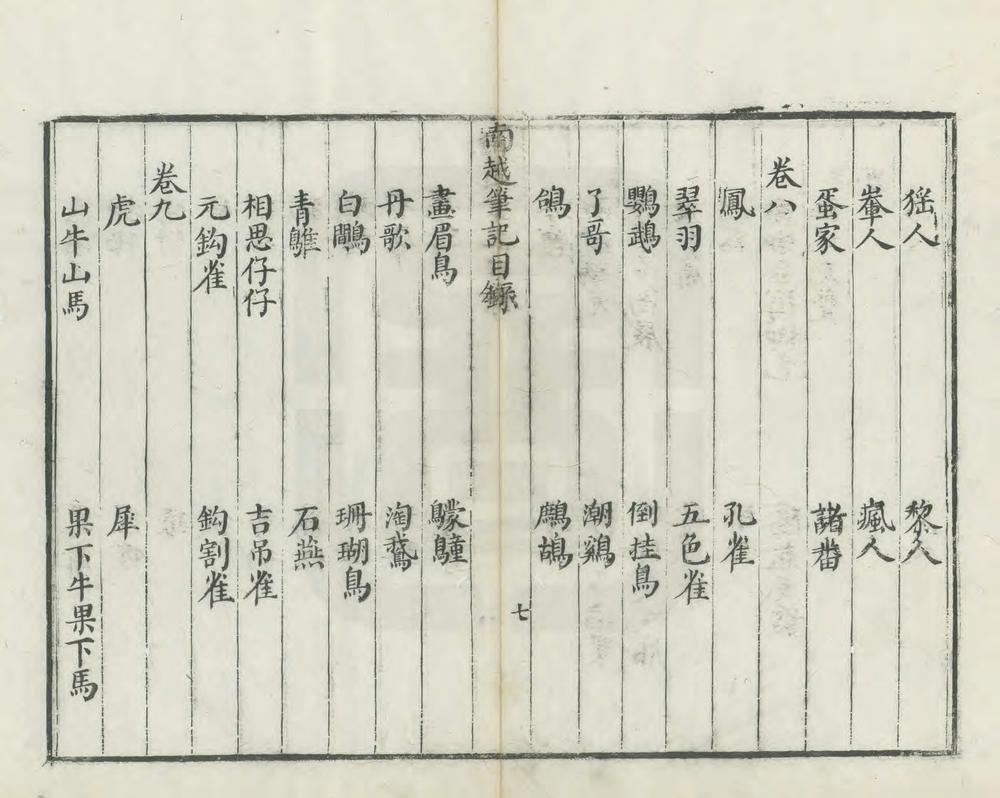 猺人 黎人
輋人 瘋人
蛋家 諸番
卷八
鳳 孔雀
翠羽 五色雀
鸚鵡 倒挂鳥
了哥 潮鷄
鴿 鷓鴣
南越筆記目錄 七
畫眉鳥 䴌鸏
丹歌 淘鵞
白鷳 珊瑚鳥
青鵻 石燕
相思仔仔 吉吊雀
元鈎雀 鈎割雀
卷九
虎 犀
山牛山馬 果下牛果下馬